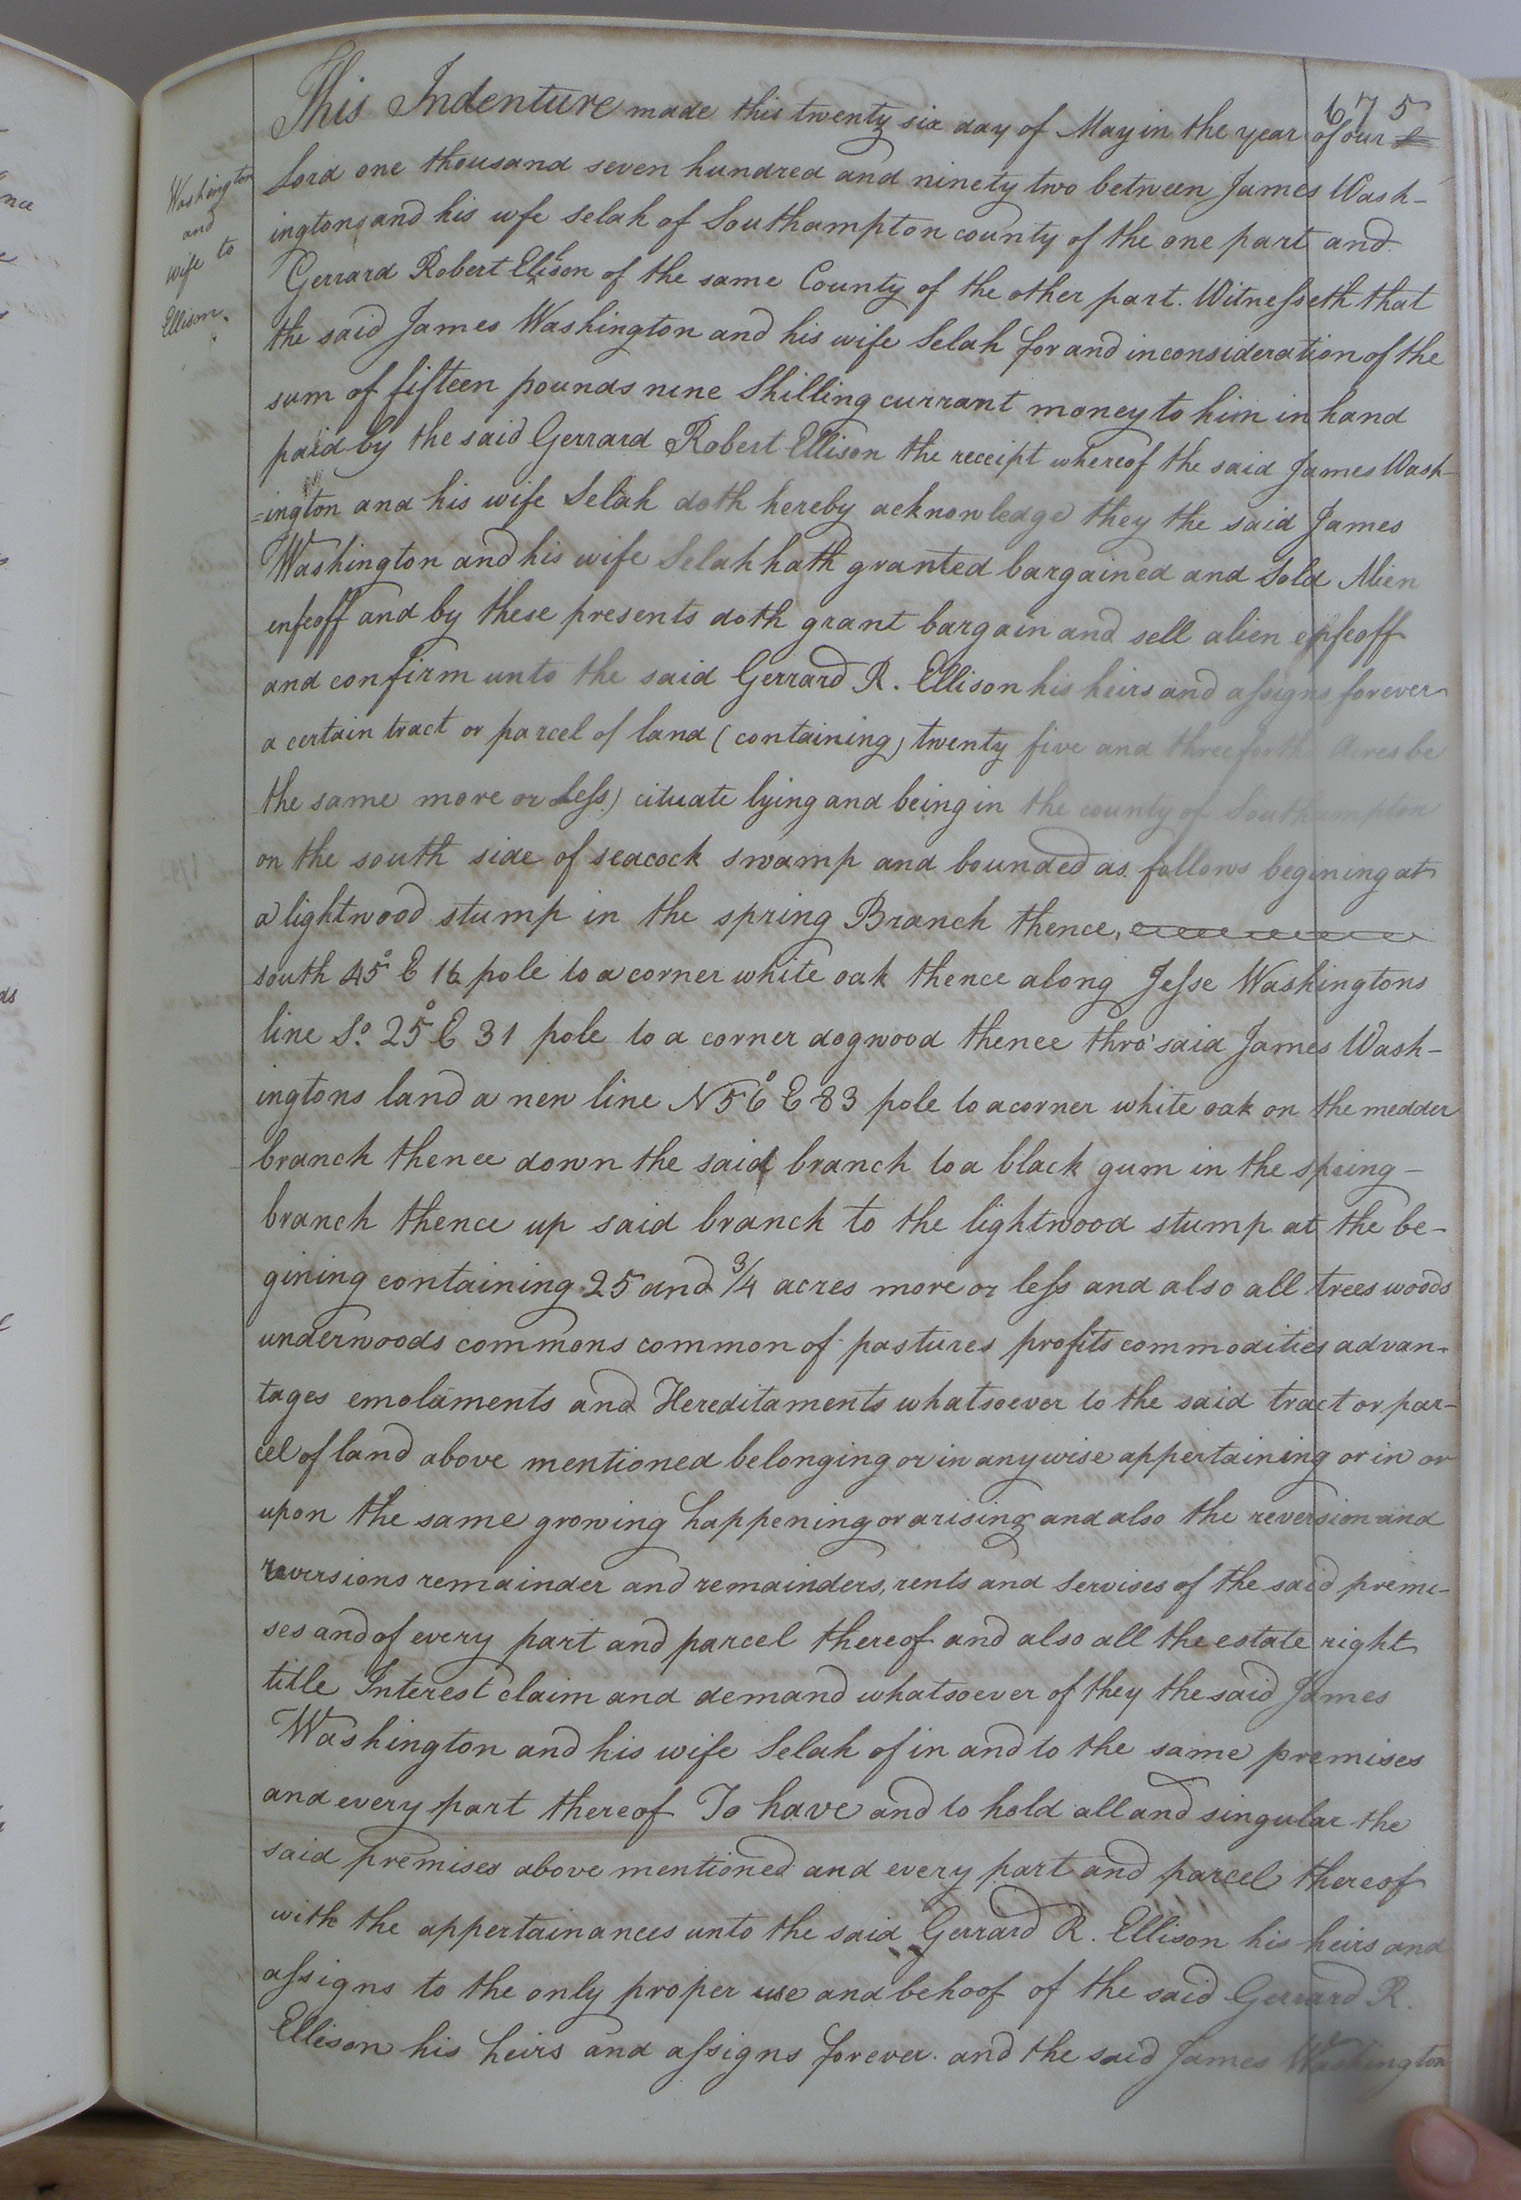 675
This Indenture made this twenty six day of May in the year of our
Washington
and
wife to
Ellison.
Lord one thousand seven hundred and ninety two between James Wash-
ingtons and his wfe Selah of Southampton county of the one part and
Gerrard Robert Elison of the same County of the other part. Witnesseth that
the said James Washington and his wife Selah for and inconsideration of the
sum of fifteen pounds nine Shilling currant money to him in hand
paid by the said Gerrard Robert Ellison the receipt whereof the said James Wash-
=ington and his wife Selah doth hereby acknowledge they the said James
Washington and his wife Selah hath granted bargained and Sold Alien
enfeoff and by these presents doth grant bargain and sell alien enfeoff
and confirm unto the said Gerrard R. Ellison his heirs and assigns forever
a certain tract or parcel of land (containing) twenty five and three forths Acres be
the same more or Less) cituate lying and being in the county of Southampton
on the south side of seacock swamp and bounded as follows begining at
a lightwood stump in the spring Branch thence,
south 45° E 16 pole to a corner white oak thence along Jesse Washingtons
line So. 25° E 31 pole to a corner dogwood thence thro' said James Wash-
ingtons land a new line N 56° E 83 pole to a corner white oak on the medder
branch thence down the said branch to a black gum in the spring-
branch thence up said branch to the lightwood stump at the be-
gining containing 25 and 3/4 acres more or less and also all trees woods
underwoods commons common of pastures profits commodities advan-
tages emolaments and Hereditaments whatsoever to the said tract or par-
cel of land above mentioned belonging or in anywise appertaining or in or
upon the same growing happening or arising and also the reversion and
reversions remainder and remainders, rents and Servises of the said premi-
ses and of every part and parcel thereof and also all the estate right
title Interest claim and demand whatsoever of they the said James
Washington and his wife Selah of in and to the same premises
and every part thereof To have and to hold all and singular the
said premises above mentioned and every part and parcel thereof
with the appertainances unto the said Gerrard R. Ellison his heirs and
assigns to the only proper use and behoof of the said Gerrard R.
Ellison his heirs and assigns forever. and the said James Washington